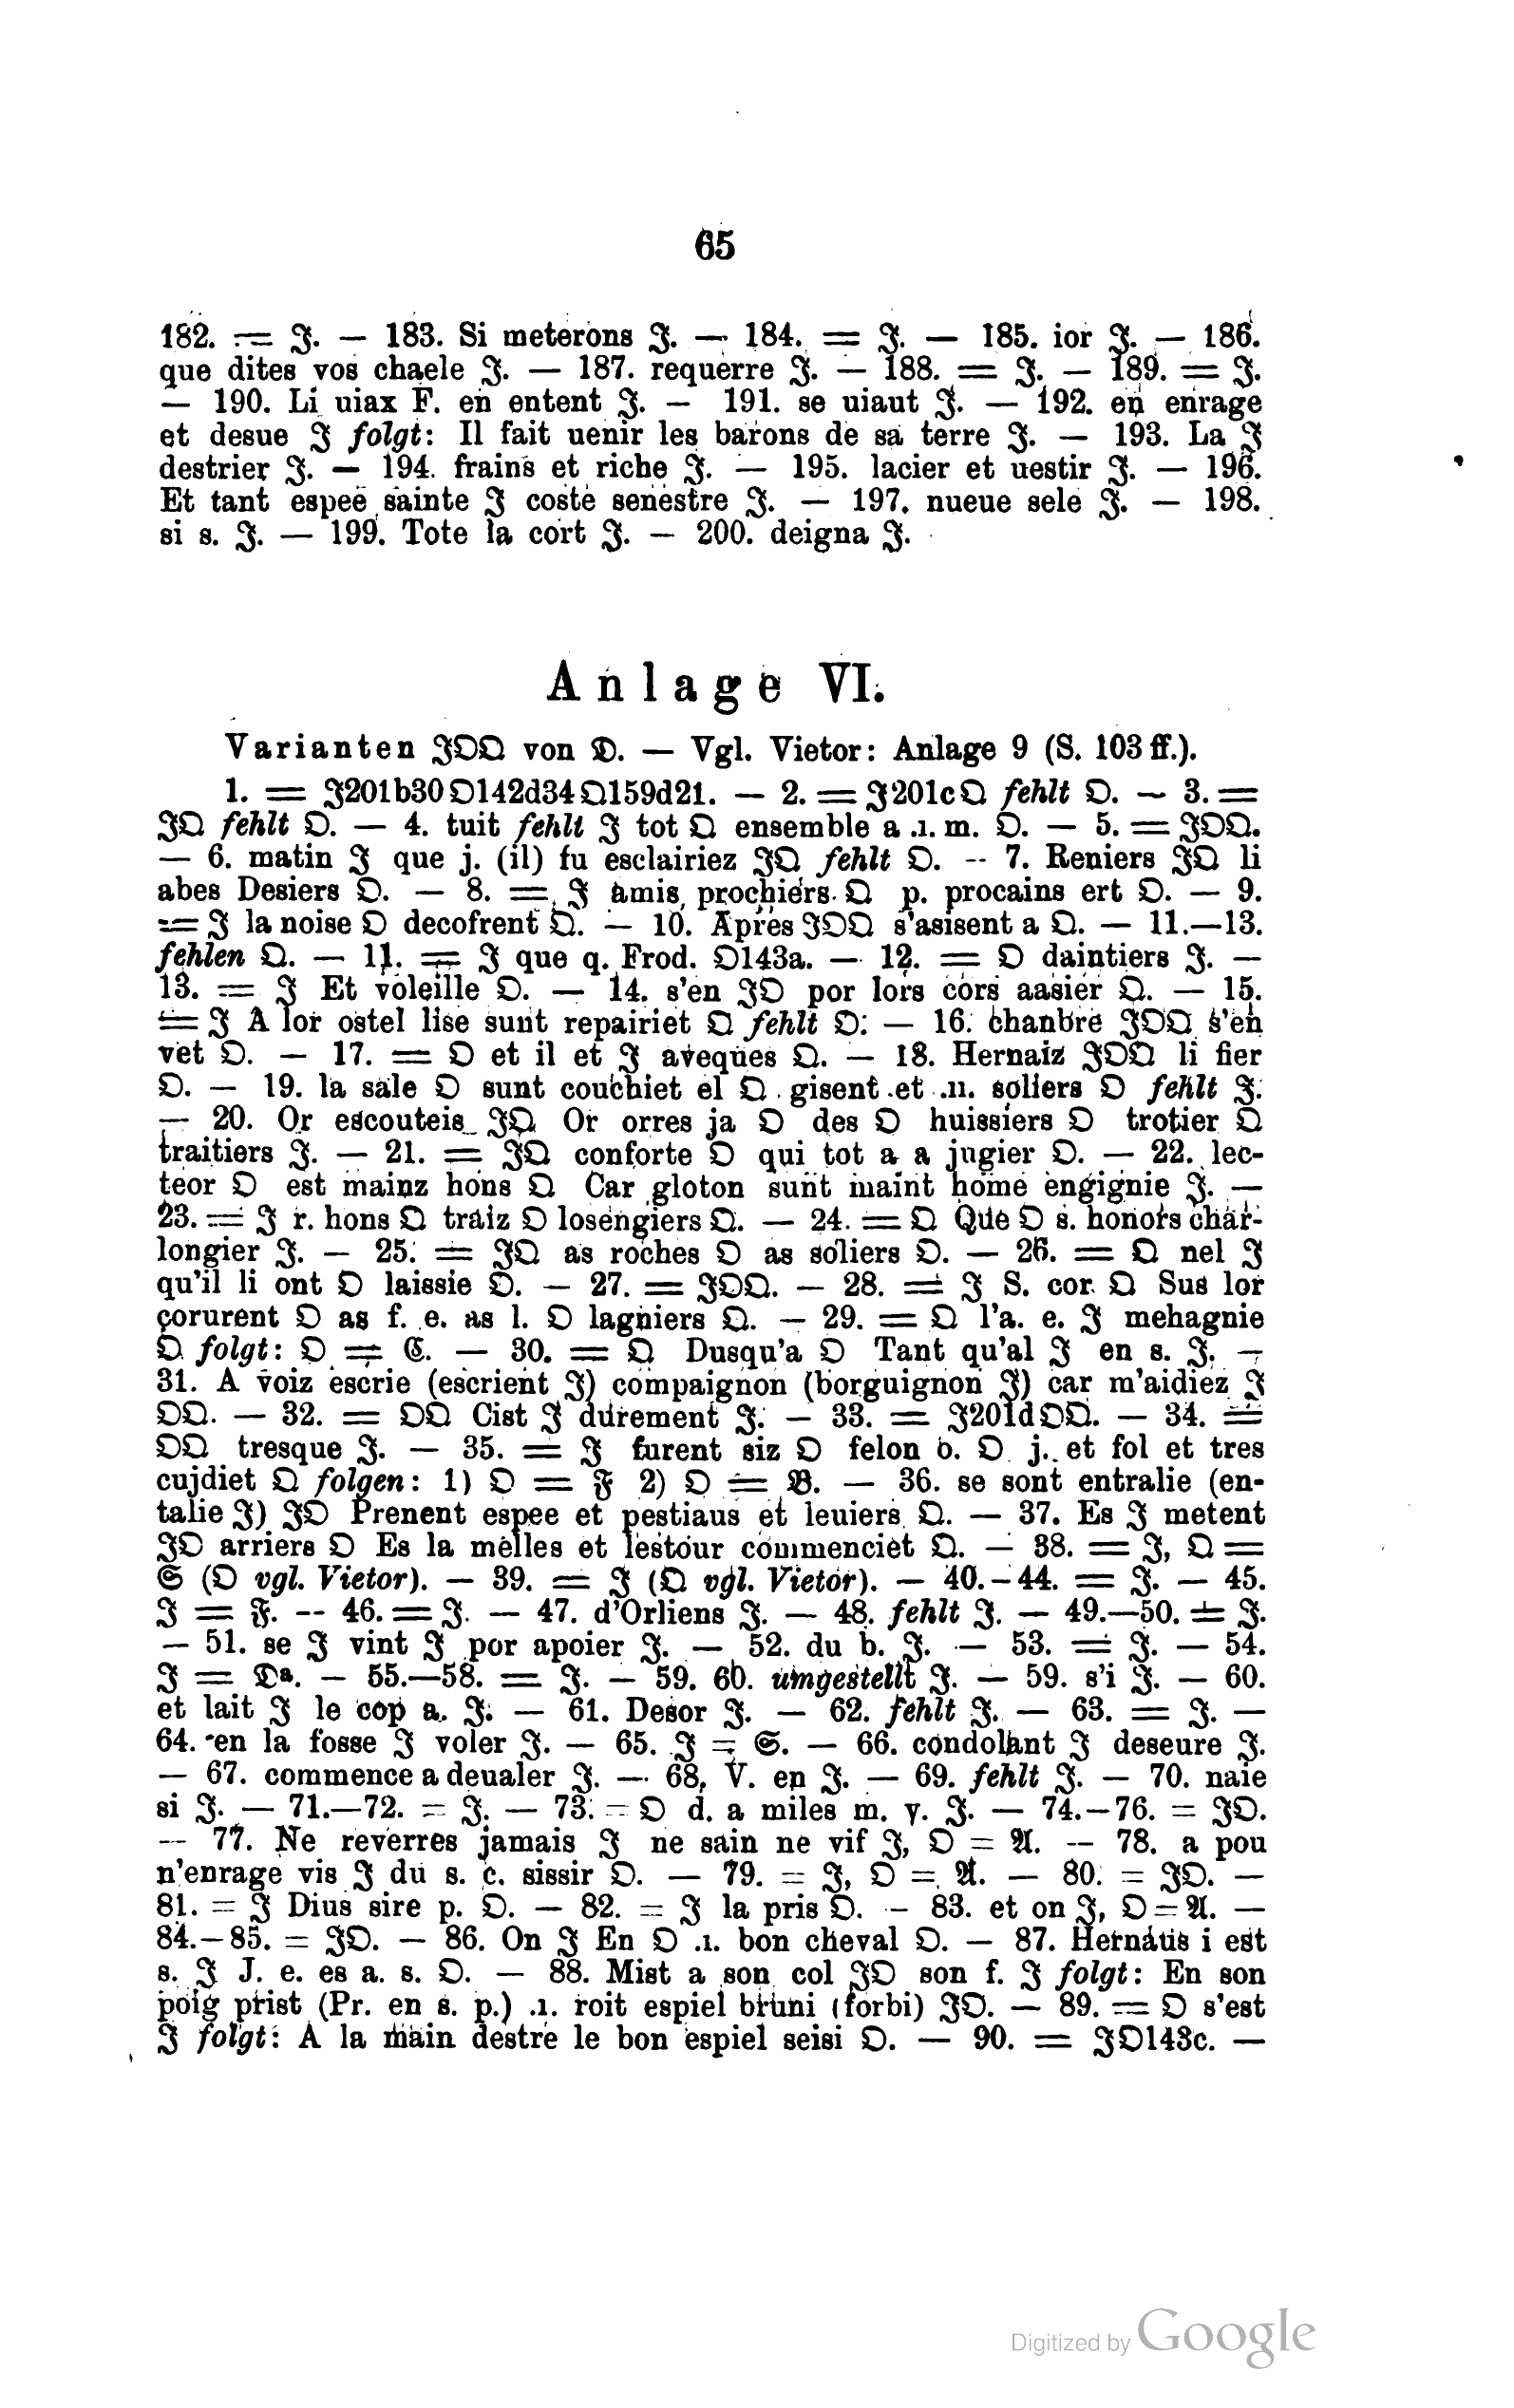 65
182. = ℑ. — 183. Si meterons ℑ. — 184. = ℑ. — 185. ior ℑ. — 186.
que dites vos chaele ℑ. — 187. requerre ℑ. — 188. = ℑ. — 189. = ℑ.
— 190. Li uiax F. en entent ℑ. — 191. se uiaut ℑ. — 192. en enrage
et desue ℑ folgt: Il fait uenir les barons de sa terre ℑ. — 193. La ℑ
destrier ℑ. — 194. frains et riche ℑ. — 195. lacier et uestir ℑ. — 196.
Et tant espee sainte ℑ coste senestre ℑ. — 197. nueue sele ℑ. — 198.
si s. ℑ. — 199. Tote la cort ℑ. — 200. deigna ℑ.
Anlage VI.
Varianten ℑ𝔒𝔔 von 𝔇. — Vgl. Vietor: Anlage 9 (S. 103 ff.).
1. = ℑ201b30𝔒142d34𝔔159d21. — 2. = ℑ201c𝔔 fehlt 𝔒. — 3. =
ℑ𝔔 fehlt 𝔒. — 4. tuit fehlt ℑ tot 𝔔 ensemble a .ı. m. 𝔒. — 5. = ℑ𝔒𝔔.
— 6. matin ℑ que j. (il) fu esclairiez ℑ𝔔 fehlt 𝔒. -- 7. Reniers ℑ𝔔 li
abes Desiers 𝔒. — 8. = ℑ amis prochiers 𝔔 p. procains ert 𝔒. — 9.
= ℑ la noise 𝔒 decofrent 𝔔. — 10. Après ℑ𝔒𝔔 s'asisent a 𝔔. — 11.—13.
fehlen 𝔔. — 11. = ℑ que q. Frod. 𝔒143a. — 12. = 𝔒 daintiers ℑ. —
13. = ℑ Et voleille 𝔒. — 14. s'en ℑ𝔒 por lors cors aasier 𝔔. — 15.
= ℑ A lor ostel lise sunt repairiet 𝔔 fehlt 𝔒: — 16. chanbre ℑ𝔒𝔔 s'en
vet 𝔒. — 17. = 𝔒 et il et ℑ aveques 𝔔. — 18. Hernaiz ℑ𝔒𝔔 li fier
𝔒. — 19. la sale 𝔒 sunt couchiet el 𝔔 gisent et .ıı. soliers 𝔒 fehlt ℑ.
— 20. Or escouteis ℑ𝔔 Or orres ja 𝔒 des 𝔒 huissiers 𝔒 trotier 𝔔
traitiers ℑ. — 21. = ℑ𝔔 conforte 𝔒 qui tot a a jugier 𝔒. — 22. lec-
teor 𝔒 est mainz hons 𝔔 Car gloton sunt maint home engignie ℑ. —
23. = ℑ r. hons 𝔔 traiz 𝔒 losengiers 𝔔. — 24. = 𝔔 Que 𝔒 s. honors char-
longier ℑ. — 25. = ℑ𝔔 as roches 𝔒 as soliers 𝔒. — 26. = 𝔔 nel ℑ
qu'il li ont 𝔒 laissie 𝔒. — 27. = ℑ𝔒𝔔. — 28. = ℑ S. cor. 𝔔 Sus lor
corurent 𝔒 as f. e. as l. 𝔒 lagniers 𝔔. — 29. = 𝔔 l'a. e. ℑ mehagnie
𝔒 folgt: 𝔒 = 𝔈. — 30. = 𝔔 Dusqu'a 𝔒 Tant qu'al ℑ en s. ℑ. —
31. A voiz escrie (escrient ℑ) compaignon (borguignon ℑ) car m'aidiez ℑ
𝔒𝔔. — 32. = 𝔒𝔔 Cist ℑ durement ℑ. — 33. = ℑ201d𝔒𝔔. — 34. =
𝔒𝔔 tresque ℑ. — 35. = ℑ furent siz 𝔒 felon o. 𝔒 j. et fol et tres
cujdiet 𝔔 folgen: 1) 𝔒 = 𝔉 2) 𝔒 = 𝔅. — 36. se sont entralie (en-
talie ℑ) ℑ𝔒 Prenent espee et pestiaus et leuiers 𝔔. — 37. Es ℑ metent
ℑ𝔒 arriers 𝔒 Es la melles et lestour commenciet 𝔔. — 38. = ℑ, 𝔔 =
𝔖 (𝔒 vgl. Vietor). — 39. = ℑ (𝔔 vgl. Vietor). — 40.-44. = ℑ. — 45.
ℑ = 𝔉. -- 46. = ℑ. — 47. d'Orliens ℑ. — 48. fehlt ℑ. — 49.—50. = ℑ.
— 51. se ℑ vint ℑ por apoier ℑ. — 52. du b. ℑ. — 53. = ℑ. — 54.
ℑ = 𝔇ᵃ. — 55.—58. = ℑ. — 59. 60. umgestellt ℑ. — 59. s'i ℑ. — 60.
et lait ℑ le cop a. ℑ. — 61. Desor ℑ. — 62. fehlt ℑ. — 63. = ℑ. —
64. en la fosse ℑ voler ℑ. — 65. ℑ = 𝔖. — 66. condolant ℑ deseure ℑ.
— 67. commence a deualer ℑ. — 68. V. en ℑ. — 69. fehlt ℑ. — 70. naie
si ℑ. — 71.—72. = ℑ. — 73. = 𝔒 d. a miles m. y. ℑ. — 74.—76. = ℑ𝔒.
— 77. Ne reverres jamais ℑ ne sain ne vif ℑ, 𝔒 = 𝔄. -- 78. a pou
n'enrage vis ℑ du s. c. sissir 𝔒. — 79. = ℑ, 𝔒 = 𝔄. — 80. = ℑ𝔒. —
81. = ℑ Dius sire p. 𝔒. — 82. = ℑ la pris 𝔒. — 83. et on ℑ, 𝔒 = 𝔄. —
84.—85. = ℑ𝔒. — 86. On ℑ En 𝔒 .ı. bon cheval 𝔒. — 87. Hernaus i est
s. ℑ J. e. es a. s. 𝔒. — 88. Mist a son col ℑ𝔒 son f. ℑ folgt: En son
poig prist (Pr. en s. p.) .ı. roit espiel bruni (forbi) ℑ𝔒. — 89. = 𝔒 s'est
ℑ folgt: A la main destre le bon espiel seisi 𝔒. — 90. = ℑ𝔒143c. —
Digitized by Google